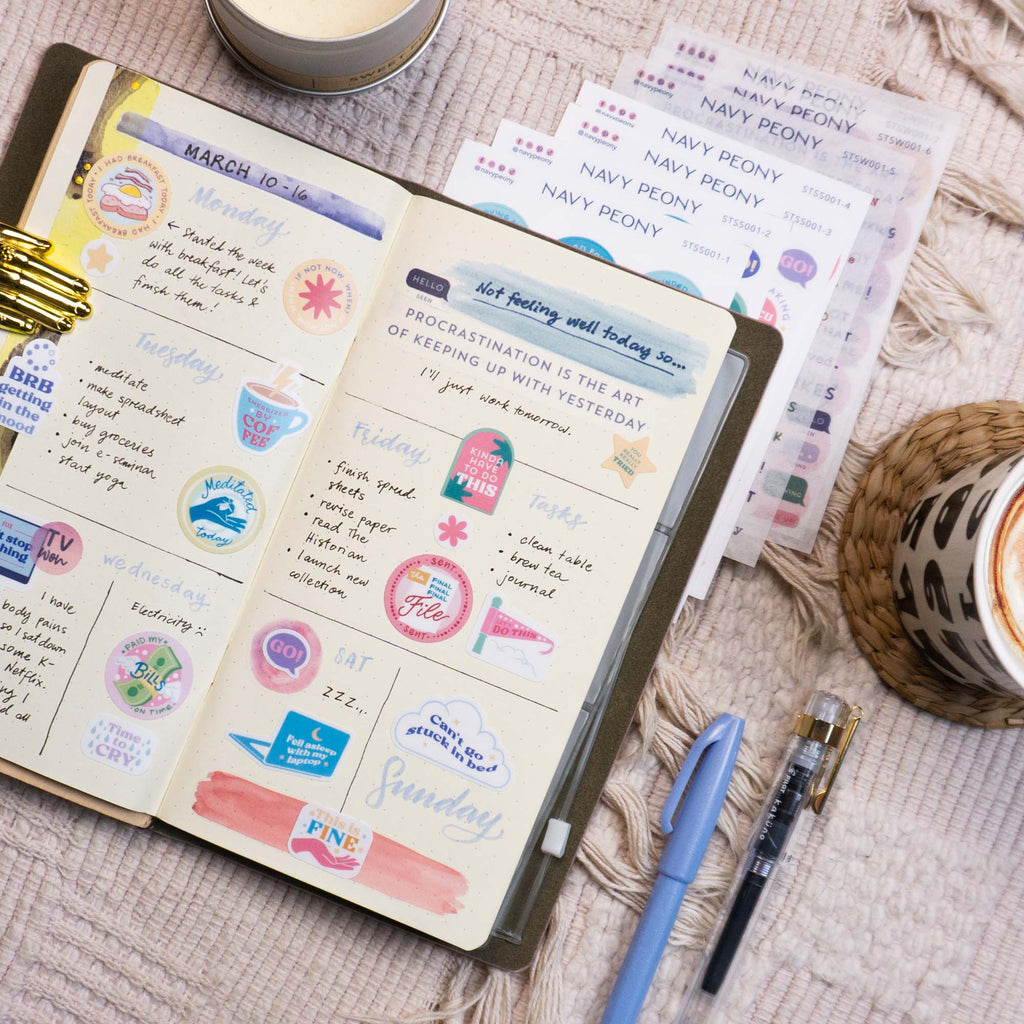 SWEET
MARCH 10-16
I HAD BREAKFAST TODAY • I HAD BREAKFAST TODAY •
Monday
← Started the week
with breakfast! Let's
do all the tasks &
finish them!
IF NOT NOW WHEN?
Tuesday
• meditate
• make spreadsheet
layout
• buy groceries
• join e-seminar
• start yoga
BRB
getting
in the
mood
ENERGIZED
BY
COF
FEE
Meditated
today
TV
won
Wednesday
I have
body pains
so I sat down
some K-
Netflix.
I
all
Electricity :(
PAID MY
Bills
ON TIME.
Time
to
CRY!
HELLO
SEEN
Not feeling well today so...
PROCRASTINATION IS THE ART
OF KEEPING UP WITH YESTERDAY
I'll just work tomorrow.
YOU
REALLY
REALLY
TRIED
Friday
• finish spread
sheets
• revise paper
• read The
Historian
• launch new
collection
KINDA
HAVE
TO DO
THIS
SENT
the
FINAL
FINAL
FINAL
File
SENT
Tasks
• clean table
• brew tea
• journal
DO THIS
GO!
SAT
zzz...
Fell asleep
with my
laptop
Can't go
stuck in bed
Sunday
This is
FINE
@navypeony
NAVY PEONY
STSS001-1
@navypeony
NAVY PEONY
STSS001-2
@navypeony
NAVY PEONY
STSS001-3
@navypeony
NAVY PEONY
STSS001-4
@navypeony
NAVY PEONY
STSW001-5
@navypeony
NAVY PEONY
STSW001-6
GO!
HELLO
PILOT kaküno